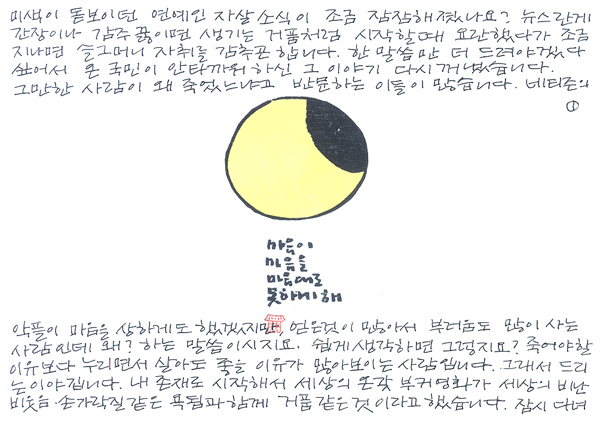 미색이 돋보이던 연예인 자살소식이 조금 잠잠해졌나요? 뉴스란게
간장이나 감주 끓이면 생기는 거품처럼 시작할때 요란했다가 조금
지나면 슬그머니 자취를 감추곤 합니다. 한 말씀만 더 드려야겠다
싶어서 온 국민이 안타까워하신 그 이야기 다시 꺼냈습니다.
그만한 사람이 왜 죽었느냐고 반문하는 이들이 많습니다. 네티즌의
①
마음이
마음을
마음대로
못하게 해
악플이 마음을 상하게도 했겠지만, 얻은것이 많아서 부러움도 많이 사는
사람인데 왜? 하는 말씀이시지요. 쉽게 생각하면 그렇지요? 죽어야할
이유보다 누리면서 살아도 좋을 이유가 많아보이는 사람입니다. 그래서 드리
는 이야깁니다. 내 존재로 시작해서 세상의 온갖 부귀영화가 세상의 비난
비웃음·손가락질 같은 욕됨과 함께 거품같은 것이라고 했습니다. 잠시 다녀